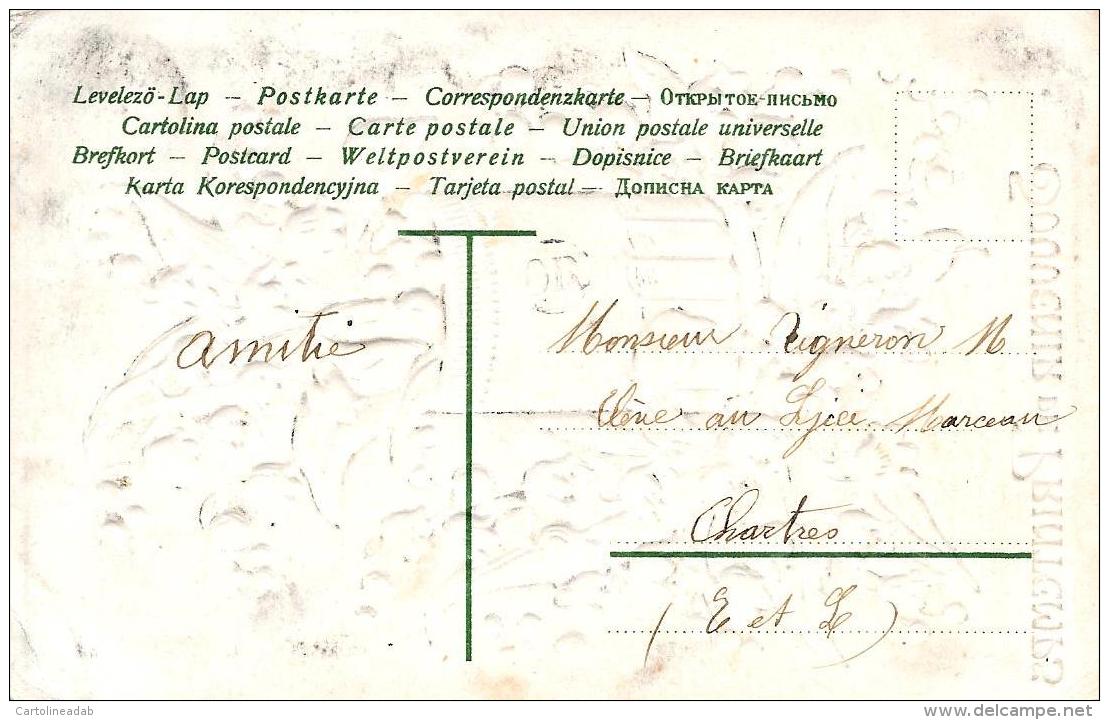 Levelező-Lap – Postkarte – Correspondenzkarte – Открытое-письмо
Cartolina postale – Carte postale – Union postale universelle
Brefkort – Postcard – Weltpostverein – Dopisnice – Briefkaart
Karta Korespondencyjna – Tarjeta postal – Дописна карта
amitié
Monsieur Vigneron M
au Lycée Marceau
Chartres
( E et L )
Cartolineadab
delcampe.net